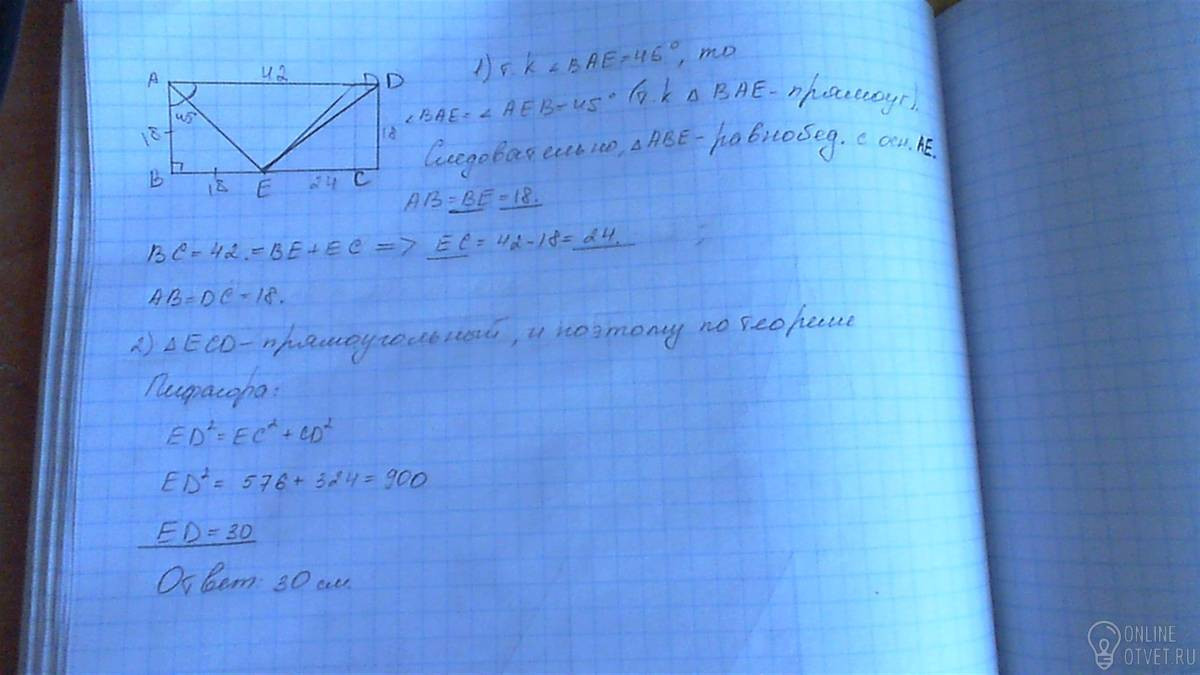 A 42 D D
45°
18 18
B 18 E 24 C
1) т.к ∠BAE=45°, то
∠BAE=∠AEB=45° (т.к △ BAE- прямоуг).
Следовательно, △ABE-равнобед. с осн. AE.
AB=BE=18.
BC=42.=BE+EC => EC=42-18=24.
AB=DC=18.
2) △ECD-прямоугольный, и поэтому по теореме
Пифагора:
ED²=EC²+CD²
ED²= 576+324=900
ED=30
Ответ: 30 см.
ONLINE
OTVET.RU